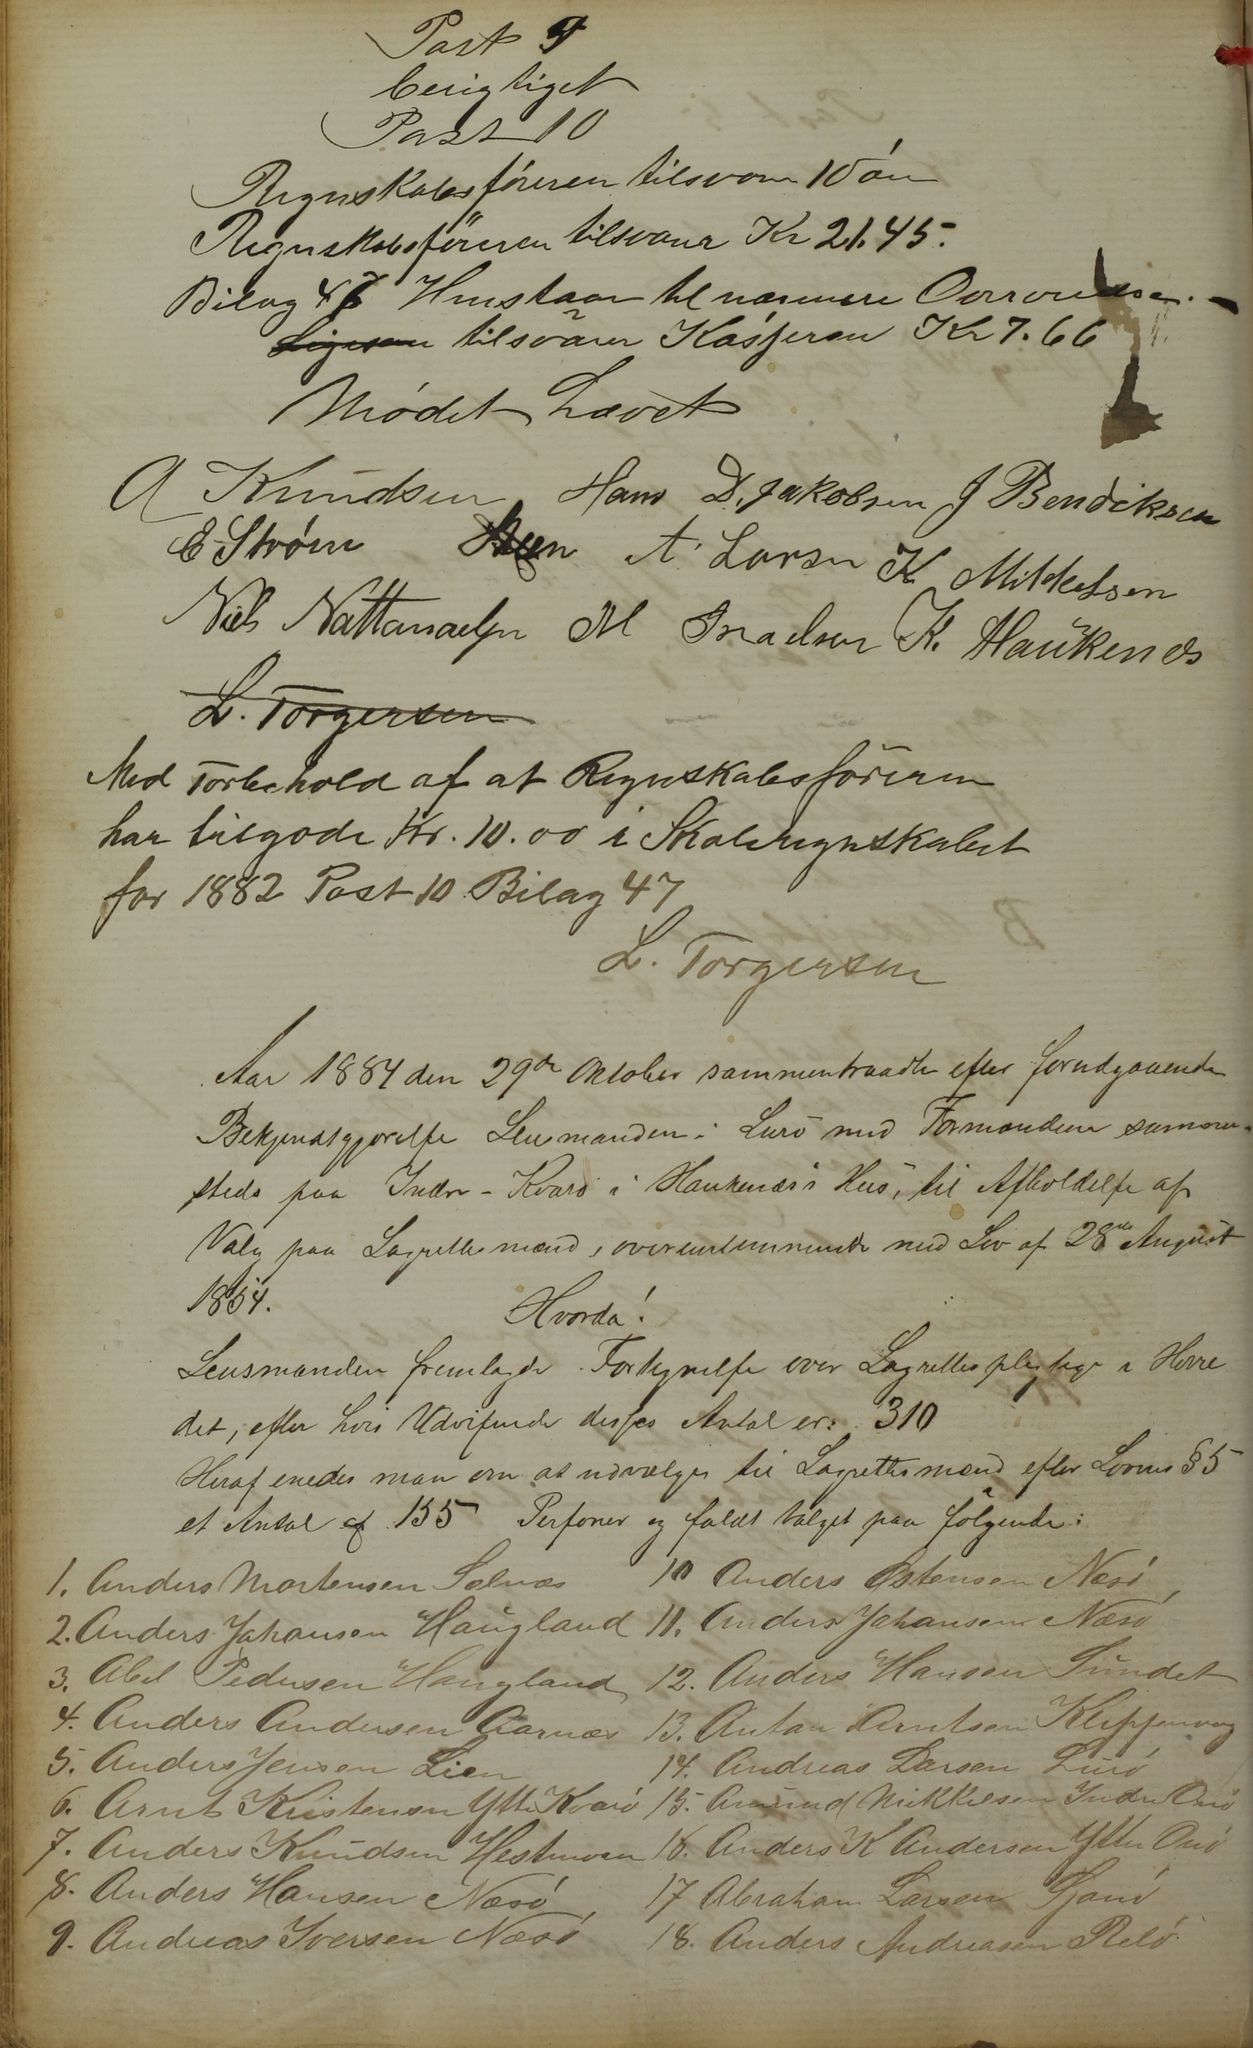 Post 9
berigtiget
Post 10
Regnskabsföreren tilsvarer 10 øre
Regnskabsföreren tilsvarer Kr 21.45.
Bilag 47 Henstaar til nærmere
tilsvarer Kasseren Kr 7.66
Mødet hævet
A Knudsen Hans D. Jakobsen J Bendiksen
E Strøm A. Larsen K Mikkelsen
Niels Nattanaelsen M Israelsen K. Haukenæs
L. Torgersen
Med Forbehold af at Regnskabsföreren
har tilgode Kr. 10.00 i Skoleregnskabet
for 1882 Post 10 Bilag 47
L. Torgersen
Aar 1884 den 29de Oktober sammentraadte efter forudgaaende
Bekjendtgjørelse Lensmanden i Lurö med Formændene sammen-
steds paa Indre-Kvarö i Haukenæs's Hus, til Afholdelse af
Valg paa Lagrettesmænd, overensstemmende med Lov af 28de August
1854. Hvorda!
Lensmanden fremlagde Fortegnelse over Lagrettespligtige i Herre
det, efter hvis Udvisende disses Antal er: 310
Heraf enedes man om at udvælge til Lagrettesmænd efter Lovens § 5
et Antal af 155 Personer og faldt Valget paa følgende:
1. Anders Mortensen Solnæs
2. Anders Johansen Haugland
3. Abel Pedersen Haugland
4. Anders Andersen Aarnæs
5. Anders Jensen Lien
6. Arnt Kristensen Ytre Kvarö
7. Anders Knudsen Hestmoen
8. Anders Hansen Næsö
9. Andreas Iversen Næsö
10 Anders Østensen Næsö
11. Anders Johansen Næsö
12. Anders Hansen Sundet
13. Anton Arntsen Kleppenvag
14. Andreas Larsen Lurö
15. Amund Mikkelsen Indre Onö
16. Anders K Andersen Ytter Onö
17 Abraham Larsen Sjonö
18. Anders Andreasen Relö